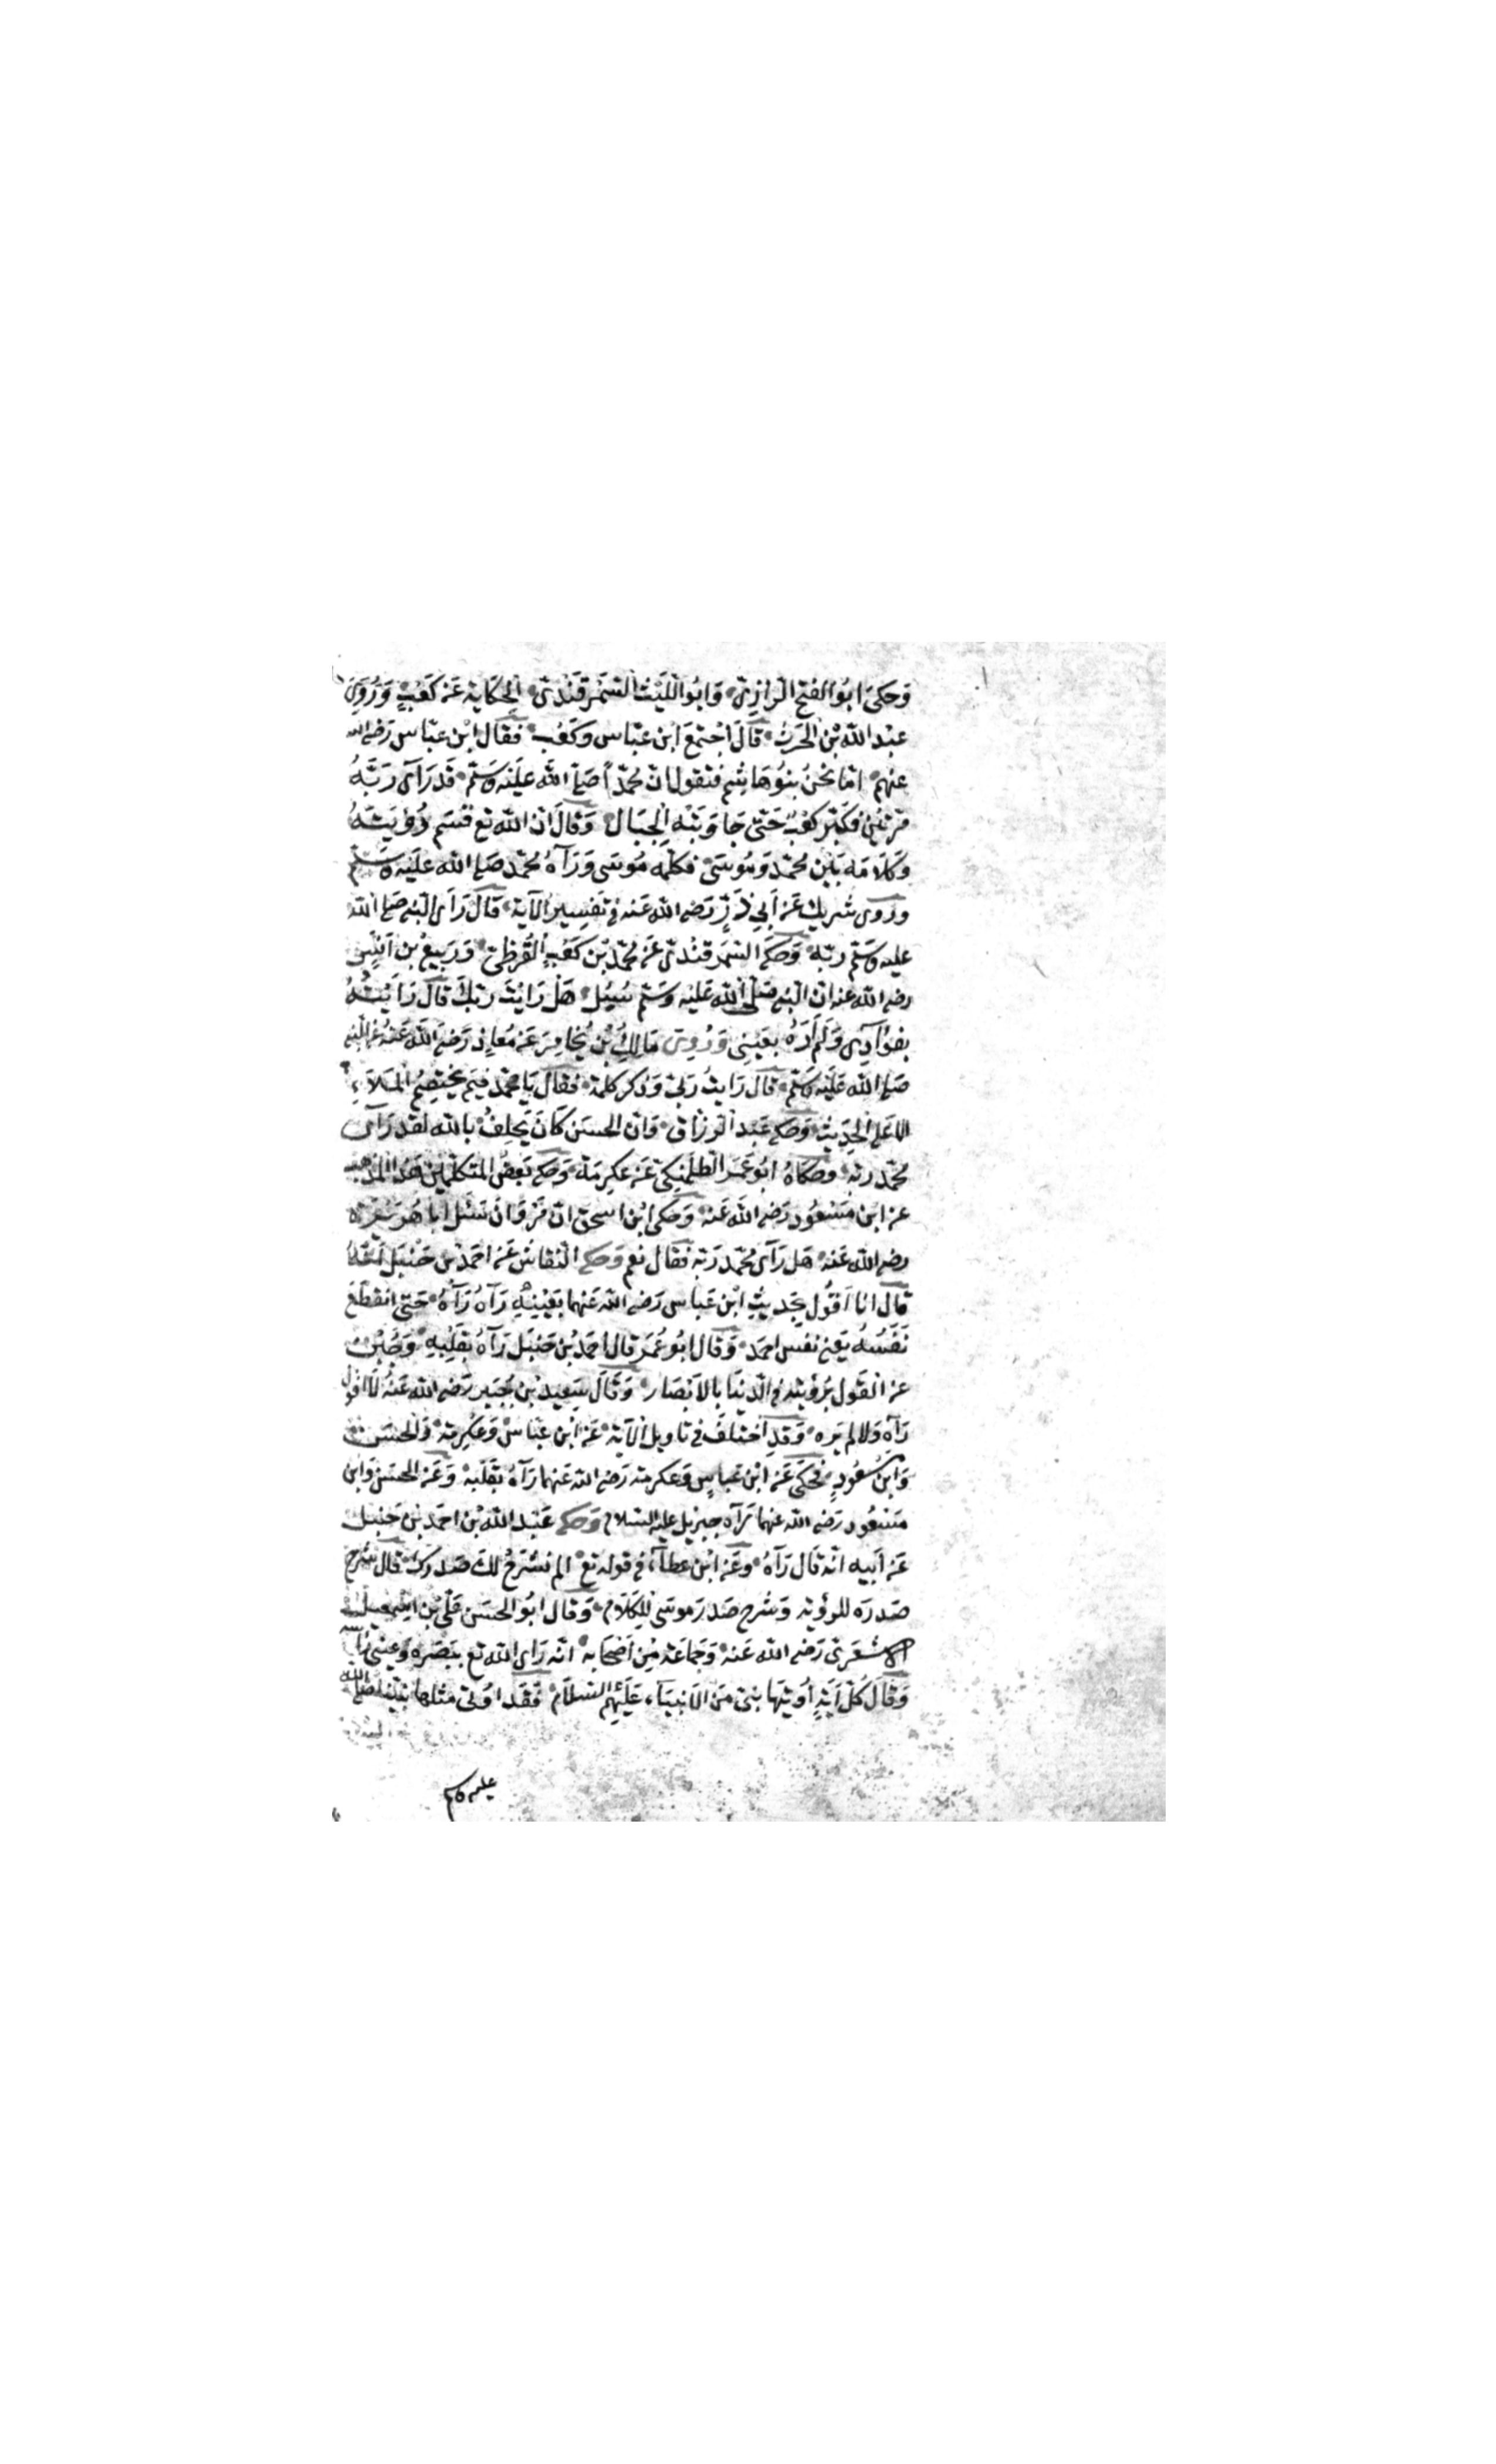 وَحَكىَ ابُو الفَتح الرازِىّ وَابُو اللّيْث السَّمَرقَندىّ الحِكَاية عَن كَعْبٍ وَرُوىَ
عبْد الله بْن الحَرث قالَ اجْتمعَ ابْن عبّاس وكعْب فقال ابْن عبّاس رَضى الله
عنهم امّا نحْنُ بنُو هَاشِم فنقول انّ محُمّداً صَلى الله عَليْه وَسَلم قد رَآى رَبّهُ
مَرتيْن فكَبّر كَعْبٌ حَتّى جَاوَبَتْه الجبَال وَقالَ انّ الله تع قسَم رُؤيَتهُ
وَكلَامَه بَيْن محُمّد وَمُوسَى فكلّمه مُوسَى وَرَآهُ محُمّد صَلى الله عليْه وَسَلم
وروَى شريك عَن اَبى ذَرٍّ رَضى الله عَنه فى تفسِير الآية قالَ رَاَى النّبى صَلى الله
عليه وَسَلم ربّه وَحكَى السّمَرقنْدىّ عَن محُمّد بْن كَعْبٍ القُرظِىّ وَربيع بْن اَنَسٍ
رضى الله عنه انّ النّبى صَلى الله عَليْه وَسَلم سُئِل هَل رَايْتَ ربّكَ قالَ رَاَيْتُهُ
بفؤَادِى وَلَم اَرَهُ بعَيْنِى وَرُوِىَ مَالِك بْن يُخامِرَ عَن مُعاذ رَضى الله عَنهُ عَن النّبى
صَلى الله عَليْه وَسَلم قالَ رَايتُ رَبّى وَذكر كلمَة فقالَ يَا محُمّد فيمَ يختصِمُ المَلاء
الاعلى الحَدِيث وَحكَى عَبْد الرزّاق وَانّ الحسَن كَانَ يَحلِفُ بالله لقد رَآى
محُمّد ربّه وحكاهُ ابُو عُمَر الطلَمَنكِىّ عَن عِكرمَة وَحكَى بَعضُ المتكلّمِين هَذا المذهب
عن ابْن مَسْعُود رَضى الله عَنه وَحكى ابْن اسحق انّ مَرْوَانَ سَئَل ابَا هُرَيْرَة
رضى الله عَنه هَل رَآى محُمّد رَبّه فقال نعم وَحكى النّقّاش عَن احمَد بْن حَنبَل انّهُ
قالَ انا اَقُول بحَديثِ ابْن عَباس رَضى الله عَنهما بعَيْنيْه رَآهُ رَآهُ حَتى انقطعَ
نَفَسُه يَعْنى نفس احمَد وَقال ابُو عُمَر قال احمَد بْن حَنبَل رَآهُ بقَلْبِهِ وَجَبُن
عن القَول برُؤيته فى الدّنيَا بالاَبْصَار وَقَالَ سَعيد بْن جُبَير رَضى الله عَنهُ لَا اقول
رَآه وَلا لم يَره وَقد اختلفَ فى تاويل الآية عَن ابْن عبّاسْ وَعكرمَة وَالحسَن
وَابْن مَسْعُودٍ فحَكَى عَن ابْن عَباسٍ وَعكرمَة رَضى الله عَنهما رَآهُ بقَلبه وَعَن الحسَن وَابْن
مَسْعُود رَضى الله عنهما رَآه جبريل عليه السّلام وَحكى عَبْد الله بْن احمَد بْن حَنبَل
عَن اَبيه انّه قَال رَآهُ وعَن ابْن عطآءٍ فى قوله تع الم نشرَحْ لك صَدرك قالَ شرَح
صَدرَه للرؤية وَشرح صَدر مُوسَى للكلَام وَقال ابُو الحسَن عَلىّ بْن اسْمعيل
الاشعَرىّ رَضى الله عَنه وَجَماعَة مِن اَصْحَابه انّه رَاى الله تع ببَصَره وَعيْنَى رَاسه
وَقالَ كُلّ آيَةٍ اُوتيَهَا نبىّ مِن الاَنبيَآءِ عَليْهم السّلَام فقَد اُوتى مثلهَا نبيّنا صلى الله
عليه وسلم